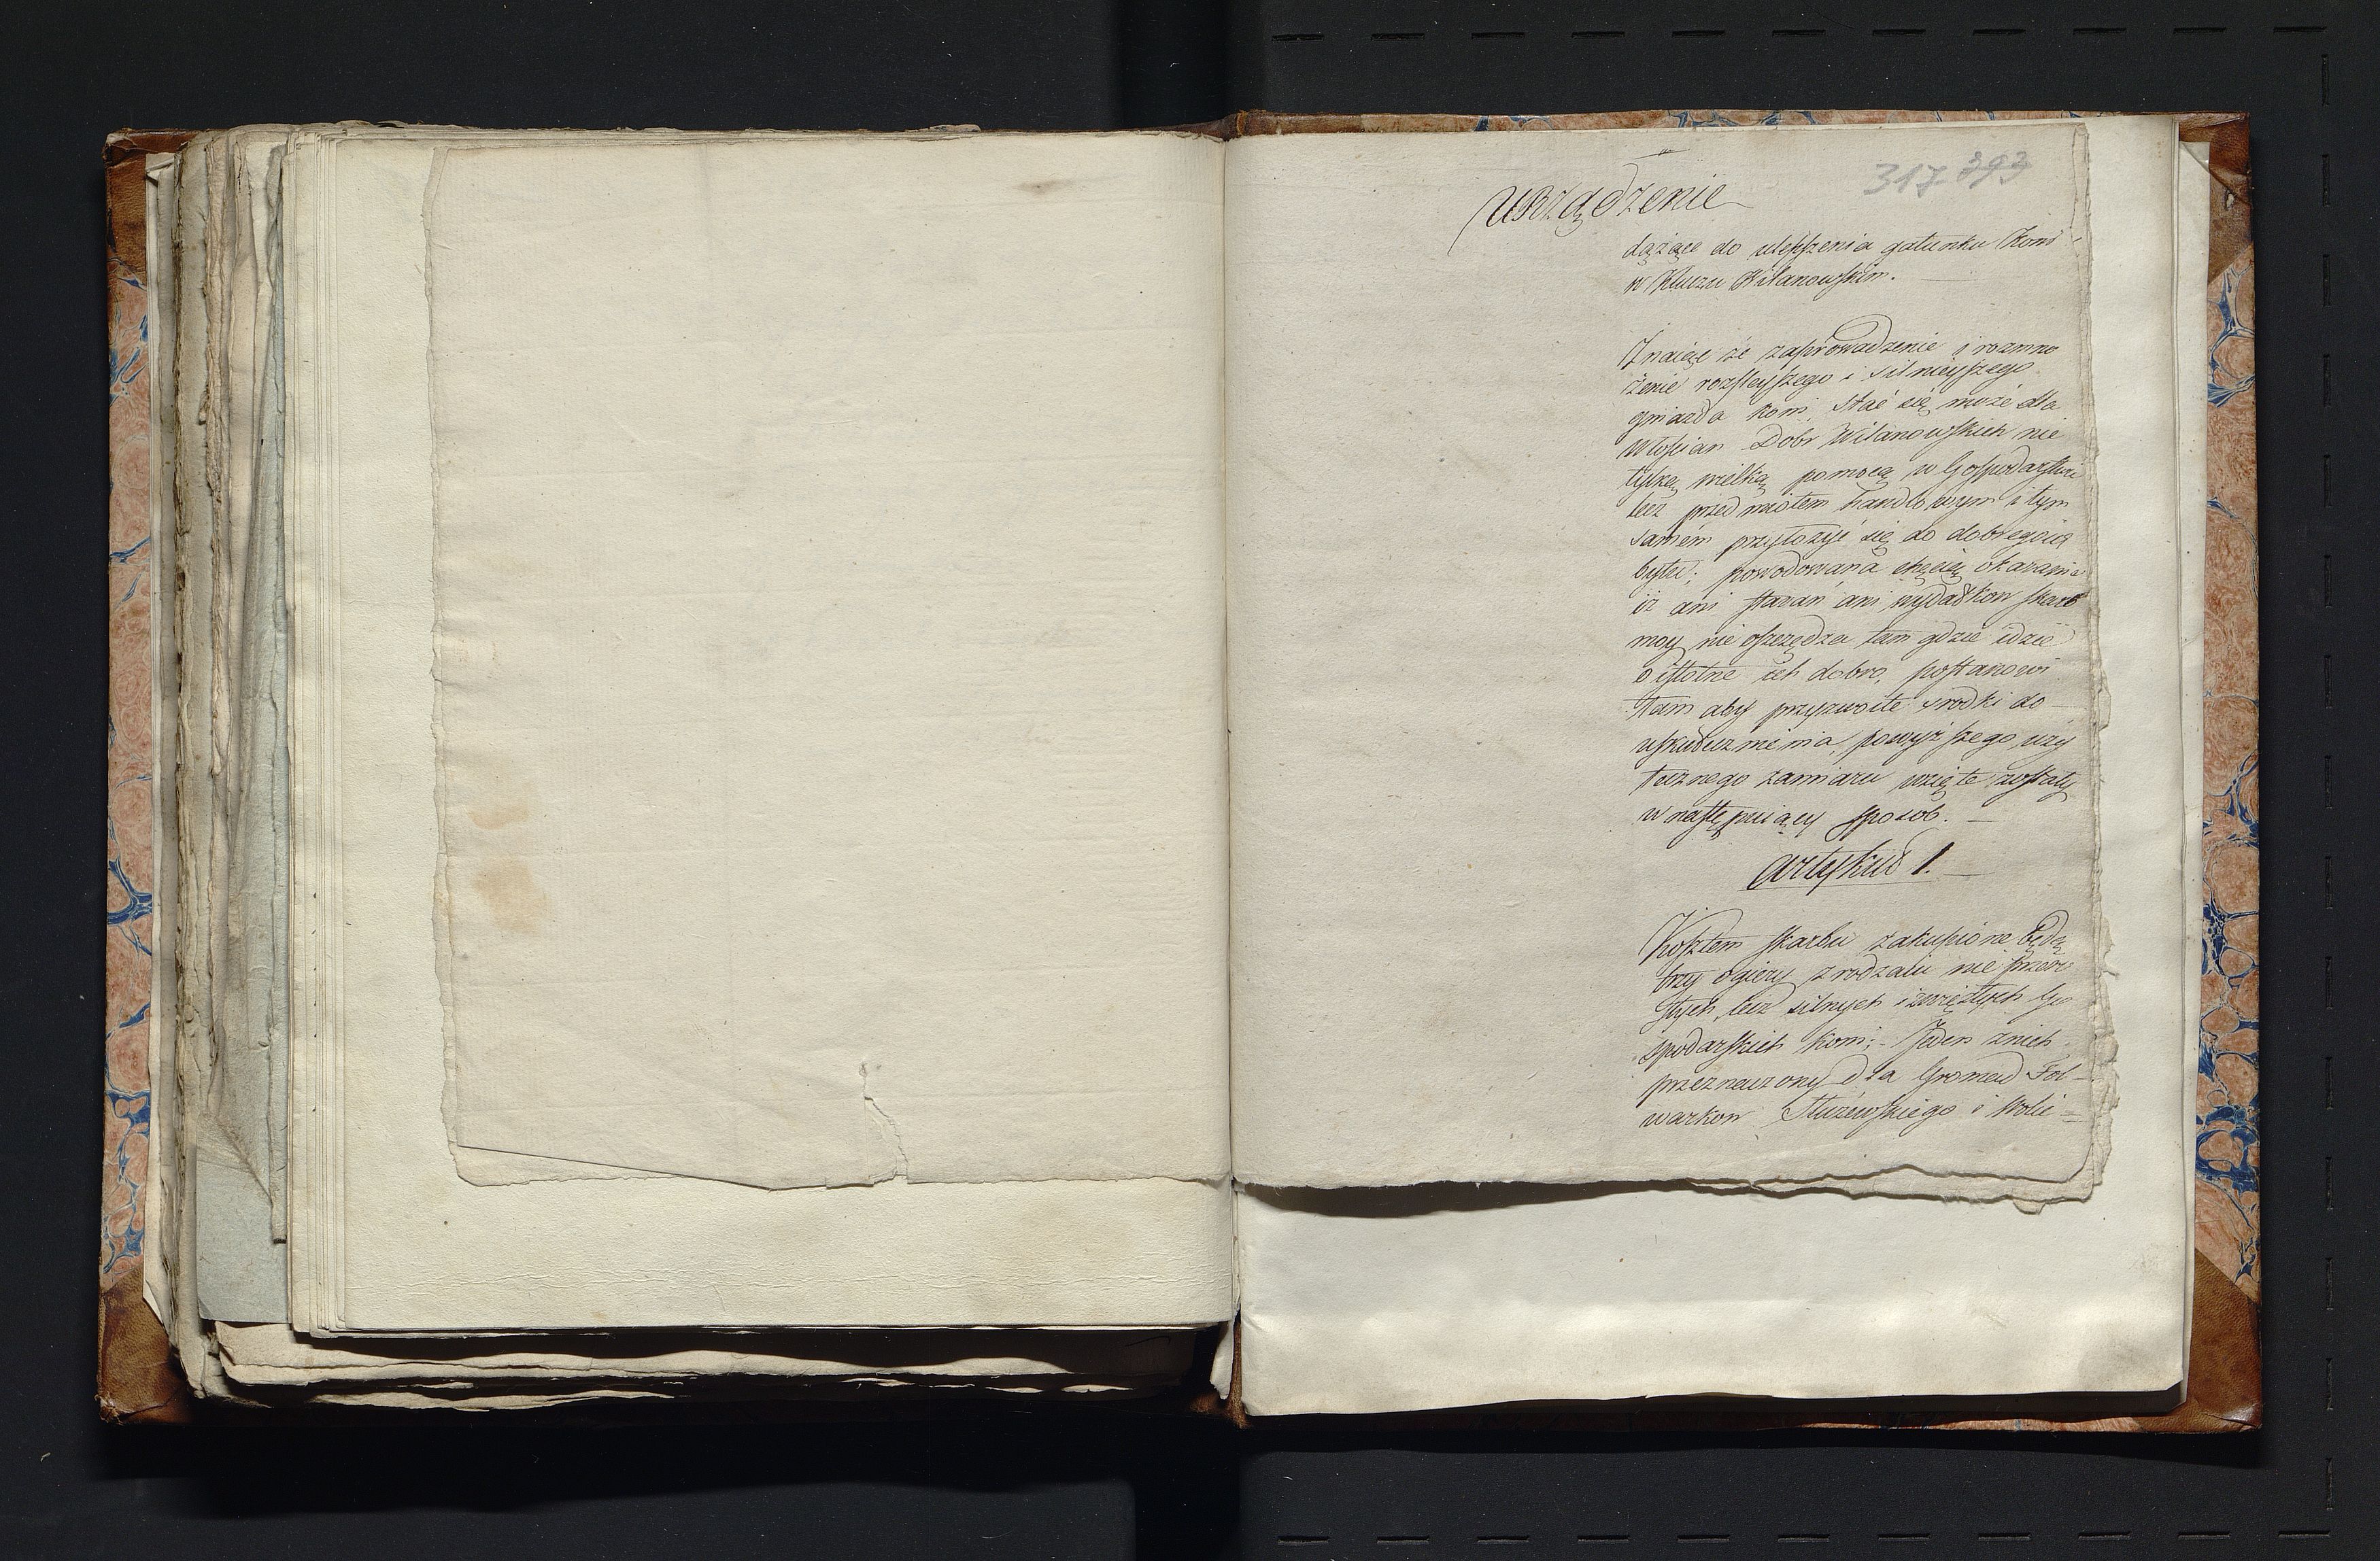 317-393
Urządzenie
dążące do ulepszenia gatunku Koni
w Kluczu Wilanowskim.
Znaiąc że zaprowadzenie i rozmno
żenie rozsleyszego i silnieyszego
gniazda koni, stać się może dla
Włościan Dobr Wilanowskich nie
tylko wielką pomocą w Gospodarstwie
lecz przedmiotem handlowym i tym
samém przyłożyć się do dobregoich
bytu; powodowana chęcią okazania
iż ani starań ani wydatkow skarb
moy nie oszczędza tam gdzie idzie
o istotne ich dobro, postanowi
łam aby przyzwoite srodki do
uskutecznienia powyższego uży
tecznego zamiaru wzięte zostały
w następuiący sposob.
Artykuł 1.
Kosztem skarbu zakupione będą
trzy ogiery z rodzaiu nie
lecz silnych i zwięzłych Go
spodarskich koni;- Jeden znich
przeznaczony dla Gromad Fol-
warkow Służewskiego i Wolic=